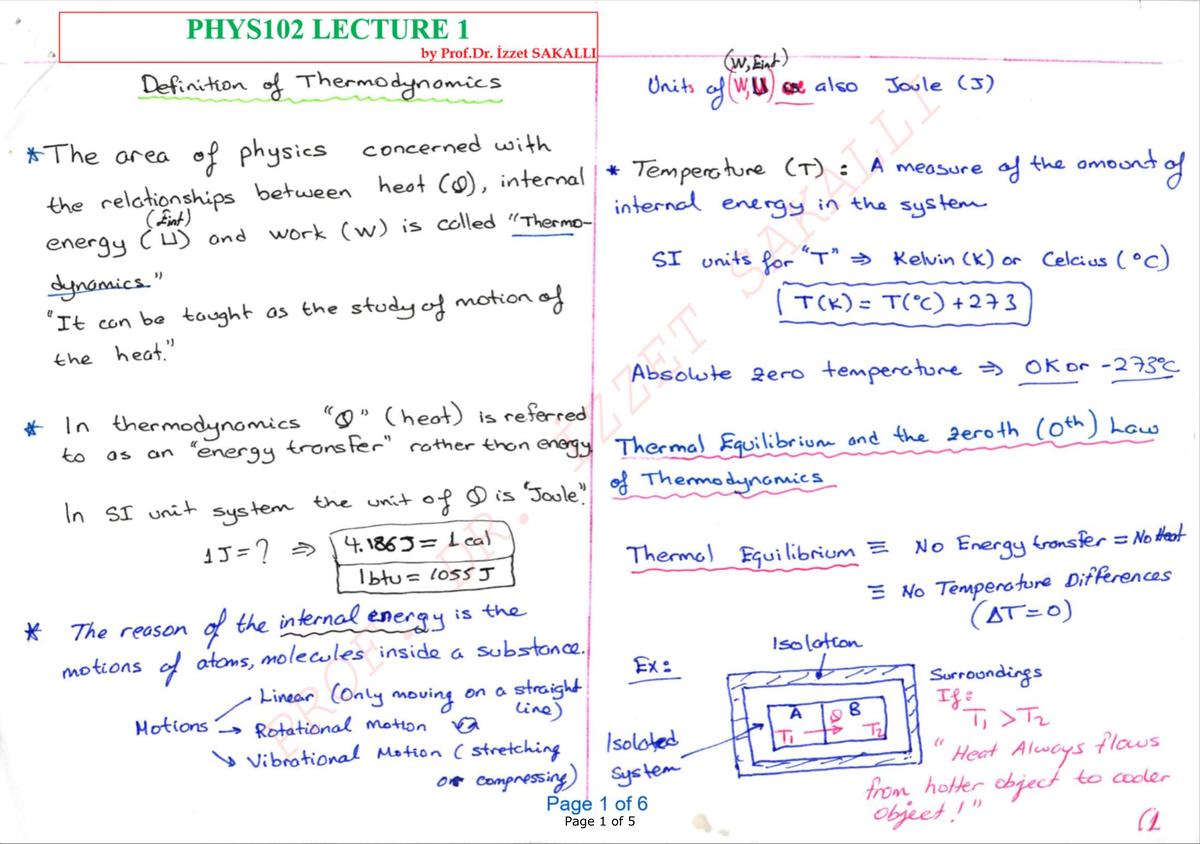 PHYS102 LECTURE 1
by Prof.Dr. İzzet SAKALLI
Definition of Thermodynamics
* The area of physics concerned with
the relationships between heat (Q), internal
(Eint)
energy (U) and work (W) is called "Thermo-
dynamics."
"It can be taught as the study of motion of
the heat."
* In thermodynamics "Q" (heat) is referred
to as an "energy transfer" rather than energy.
In SI unit system the unit of Q is "Joule".
1J=? ⇒ 4.186J = 1 cal
1 btu = 1055 J
* The reason of the internal energy is the
motions of atoms, molecules inside a substance.
Motions
→ Linear (Only moving on a straight
line)
→ Rotational motion
↘ Vibrational Motion (stretching
or compressing)
(W, Eint)
Units of (W, U) are also Joule (J)
* Temperature (T) : A measure of the amount of
internal energy in the system
SI units for "T" ⇒ Kelvin (K) or Celcius (°C)
T(K) = T(°C) + 273
Absolute zero temperature ⇒ 0K or -273°C
Thermal Equilibrium and the zeroth (0th) Law
of Thermodynamics
Thermal Equilibrium ≡ No Energy transfer = No Heat
≡ No Temperature Differences
(ΔT=0)
Ex:
Isolation
Isolated
system
A
T1
Q
B
T2
Surroundings
If:
T1 > T2
"Heat Always flows
from hotter object to cooler
object!"
(1
PROF. DR. İZZET SAKALLI
Page 1 of 6
Page 1 of 5